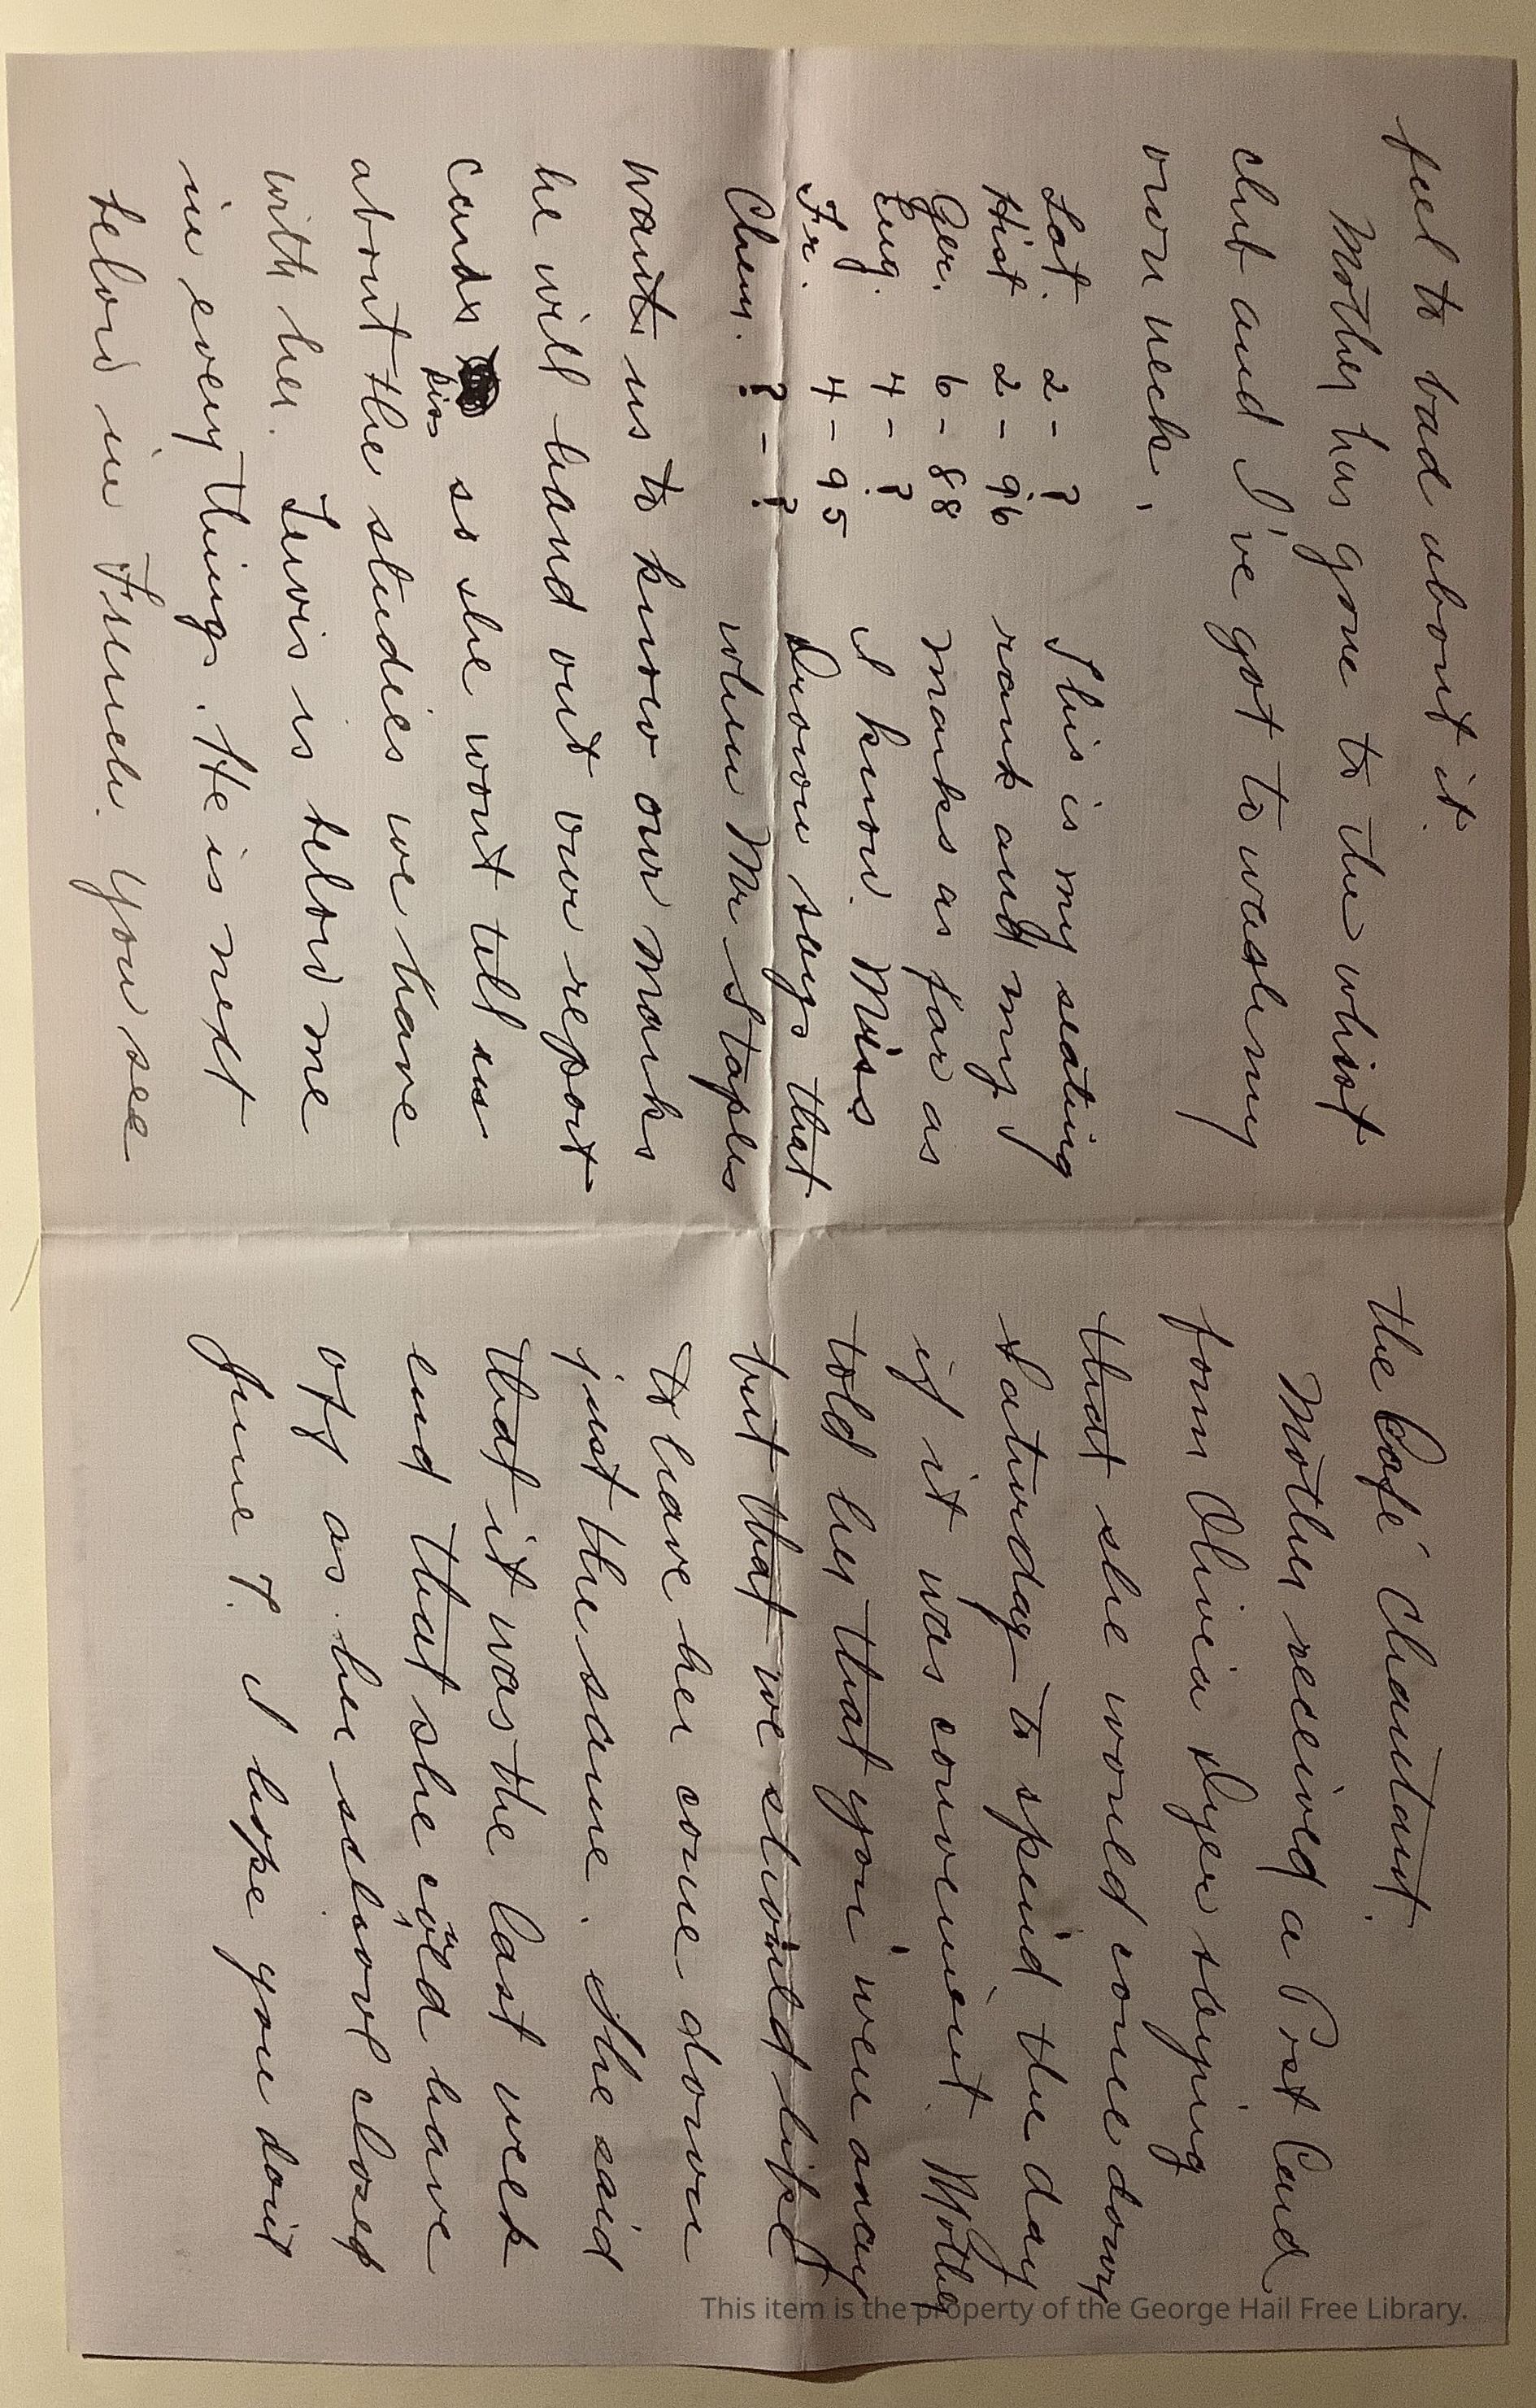 feel to bad about it.
Mother has gone to the whist
club and I've got to wash my
own neck.
Lat. 2 - ?
Hist 2 - 96
Ger. 6 - 88
Eng. 4 - ?
Fr. 4 - 95
Chem. ? - ?
This is my seating
rank and my
marks as far as
I know. Miss
Drown says that
when Mr Staples
wants us to know our marks
he will hand out our report
cards so she wont tell us
about the studies we have
with her. Lewis is below me
in every thing. He is next
below in French. You see
the Café Chantant.
Mother received a Post Card
from Olivia Dyer saying
that she would come down
Saturday to spend the day
if it was convenient. Mother
told her that you were away
but that we should like
to have her come down
just the same. She said
that it was the last week
end that she could have
off as her school closed
June 7. I hope you dont
This item is the property of the George Hail Free Library.